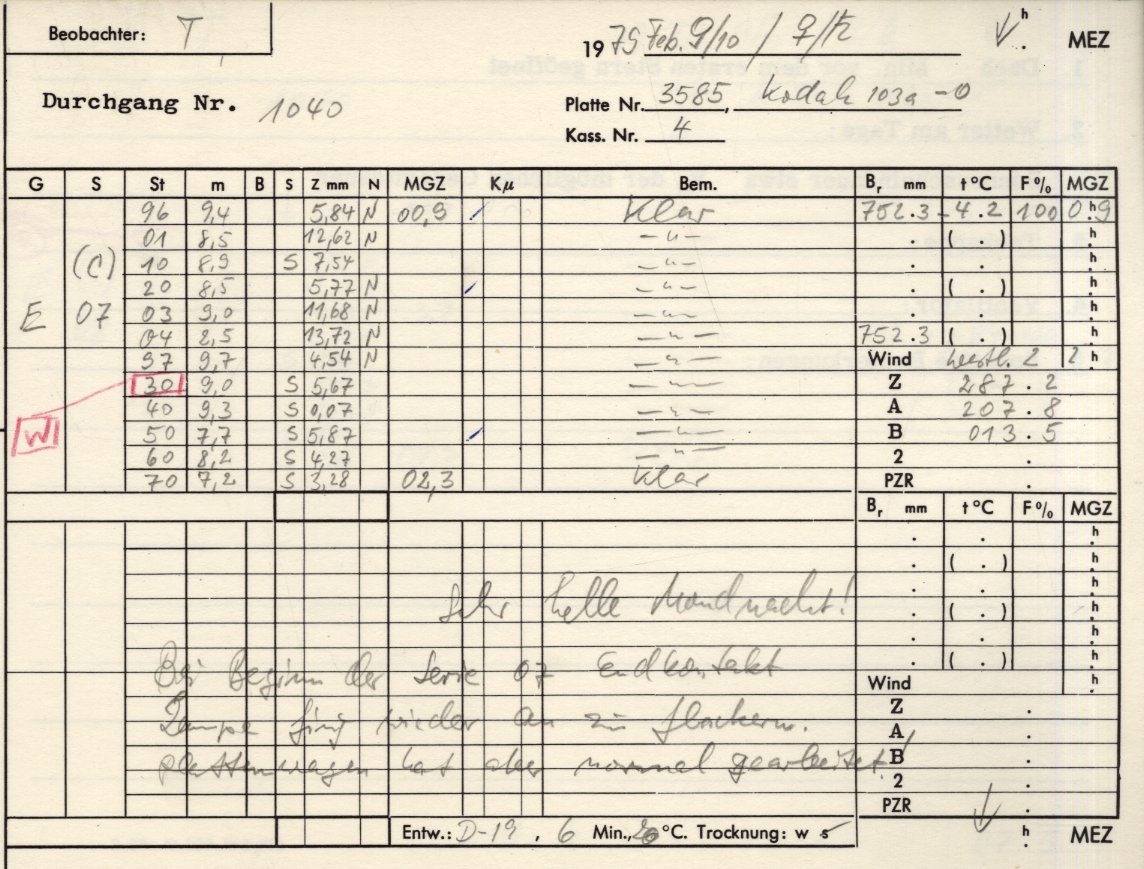 Beobachter: T
1979 Feb. 9/10 / ♀/♄ h MEZ
Durchgang Nr. 1040
Platte Nr. 3585, Kodak 103a-O
Kass. Nr. 4
G S St m B S Z mm N MGZ Kμ Bem. Br mm t °C F % MGZ
96 9,4 5,84 N 00,9 klar 752.3 -4.2 100 0.h9
01 8,5 12,62 N —"— . ( . ) h
(C) 10 8,9 S 7,54 —"— . . h
20 8,5 5,77 N —"— . ( . ) h
E 07 03 9,0 11,68 N —"— . . h
04 8,5 13,72 N —"— 752.3 ( . ) h
97 9,7 4,54 N —"— Wind westl. 2 2 h
30 9,0 S 5,67 Z 287.2
40 9,3 S 0,07 —"— A 207.8
W 50 7,7 S 5,87 —"— B 013.5
60 8,2 S 4,27 —"— 2 .
70 7,2 S 3,28 02,3 klar PZR .
Br mm t °C F % MGZ
. . h
. ( . ) h
. . h
Sehr helle Mondnacht! . ( . ) h
. . h
Bei Beginn der Serie 07 Endkontakt . ( . ) h
Wind h
Lampe fing wieder an zu flackern. Z .
A .
Plattenwagen hat aber normal gearbeitet! B .
2 .
PZR .
Entw.: D-19, 6 Min., 20 °C. Trocknung: w s h MEZ